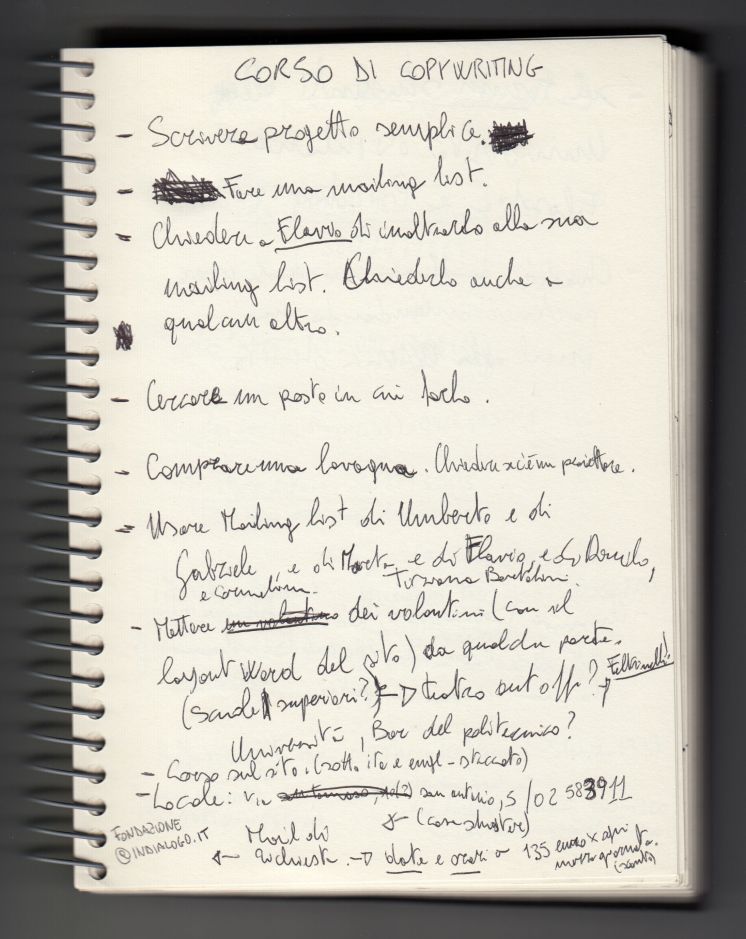 CORSO DI COPYWRITING
- Scrivere progetto semplice.
- Fare una mailing list.
- Chiedere a Flavio di inoltrarlo alla sua
mailing list. Chiederlo anche a
qualcun altro.
- Cercare un posto in cui farlo.
- Comprare una lavagna. Chiedere se c'è un proiettore.
- Usare Mailing list di Umberto e di
Gabriele, e di Marta e di Flavio, e di Danilo,
Tiziana Bortolini.
- Mettere un volantino dei volantini (con il
layout Word del sito) da qualche parte.
(scuole superiori?) → teatro out off? → Feltrinelli!
Università, Bar del politecnico?
- Corso sul sito. (sotto, ita e
- Locale: via san antonio, 5 / 02 583911
FONDAZIONE
@INDIALOGO.IT
Mail di
richiesta. → date e orari
135 euro x ogni
mezza giornata.